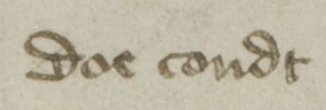 Doe condt